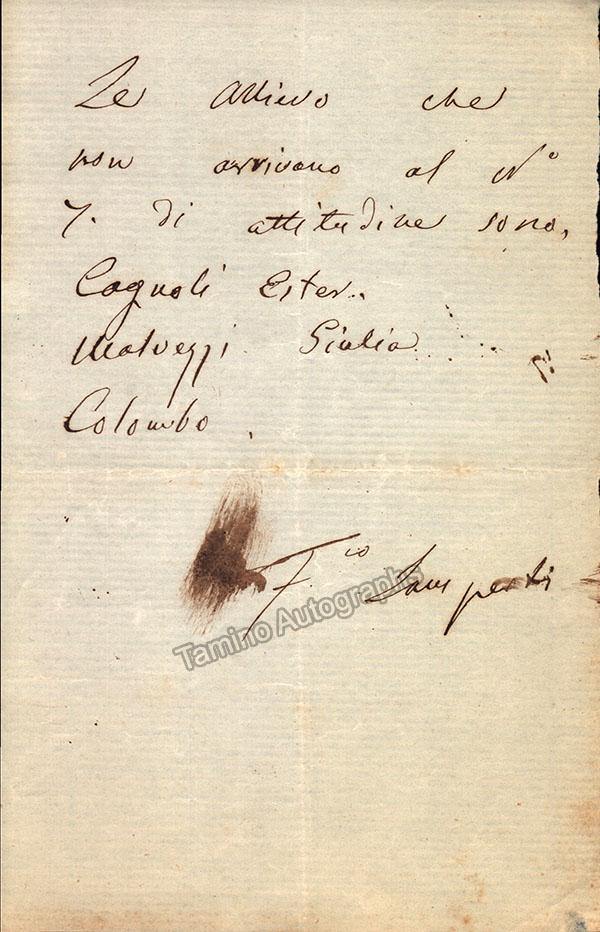 Le Allieve che
non arrivano al N°
7. di attitudine sono,
Cagnoli Ester.
Malvezzi Giulia
Colombo.
F.co Lamperti
Tamino Autographs